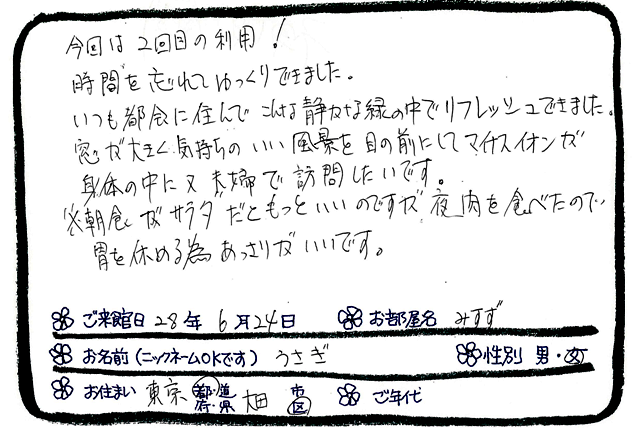 今回は2回目の利用!
時間を忘れてゆっくりできました。
いつも都会に住んで こんな静かな緑の中でリフレッシュできました。
窓が大きく気持ちのいい風景を目の前にしてマイナスイオンが
身体の中に 又 夫婦で訪問したいです。
※朝食がサラダだともっといいのですが 夜、肉を食べたので
胃を休める為あっさりがいいです。
ご来館日 28年 6月24日 お部屋名 みすず
お名前(ニックネームOKです) うさぎ 性別 男・女
お住まい 東京 都・道 府・県 大田 市 区 ご年代